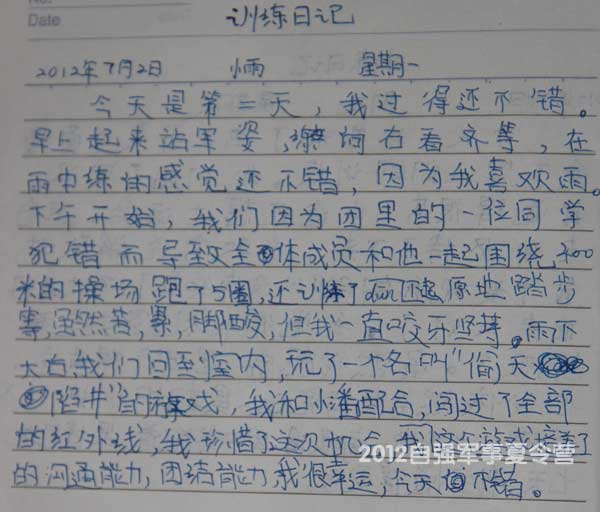 Date
训练日记
2012年7月2日 小雨 星期一
今天是第二天,我过得还不错。
早上起来站军姿,练向右看齐等,在
雨中练的感觉还不错,因为我喜欢雨。
下午开始,我们因为团里的一位同学
犯错而导致全体成员和他一起围绕400
米的操场跑了5圈,还训练了原地踏步
等,虽然苦,累,脚酸,但我一直咬牙坚持。雨下
大后我们回至室内,玩了一个名叫“偷天
陷井”的游戏,我和小潘配合,闯过了全部
的红外线,我珍惜了这次机会,我
的沟通能力,团结能力,我很幸运,今天不错。
2012自强军事夏令营